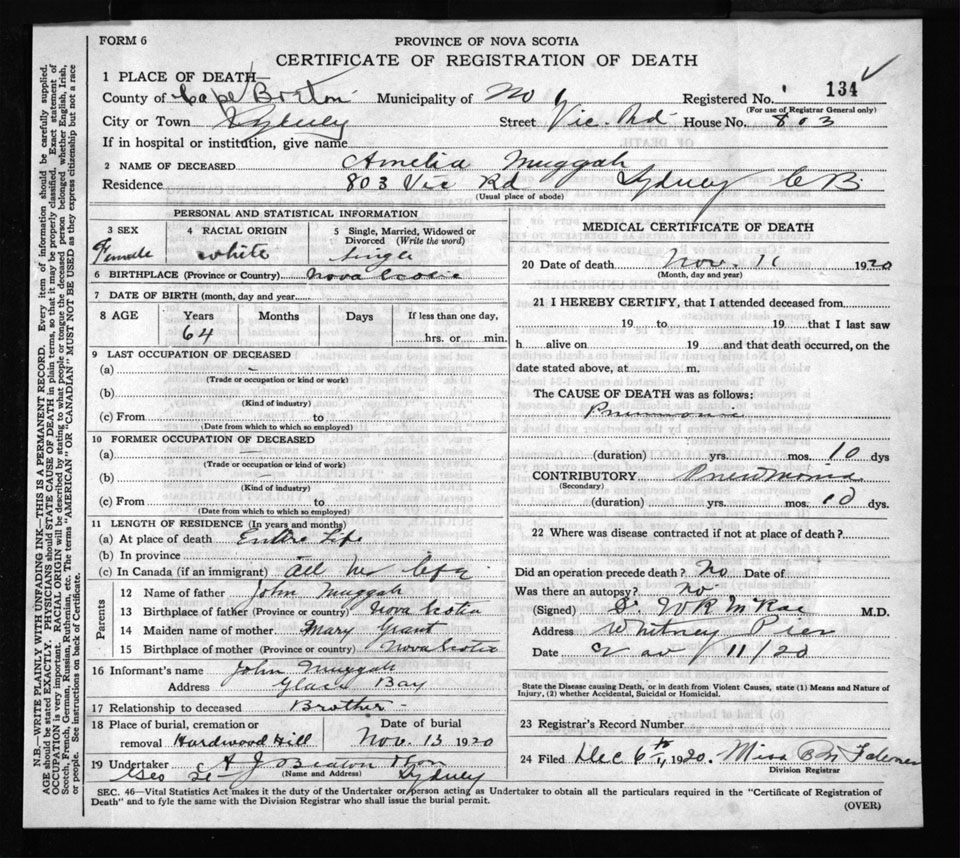 FORM 6
PROVINCE OF NOVA SCOTIA
CERTIFICATE OF REGISTRATION OF DEATH
1 PLACE OF DEATH—
County of Cape Breton Municipality of No 1 Registered No. 134
(For use of Registrar General only)
City or Town Sydney Street Vic. Rd House No. 803
If in hospital or institution, give name
2 NAME OF DECEASED Amelia Muggah
Residence 803 Vic Rd Sydney C B.
(Usual place of abode)
PERSONAL AND STATISTICAL INFORMATION
3 SEX 4 RACIAL ORIGIN 5 Single, Married, Widowed or Divorced (Write the word)
Female white Single
6 BIRTHPLACE (Province or Country) Nova Scotia
7 DATE OF BIRTH (month, day and year)
8 AGE Years Months Days If less than one day,
64 hrs. or min.
9 LAST OCCUPATION OF DECEASED
(a) –
(Trade or occupation or kind or work)
(b)
(Kind of industry)
(c) From to
(Date from which to which so employed)
10 FORMER OCCUPATION OF DECEASED
(a) —
(Trade or occupation or kind of work)
(b) —
(Kind of industry)
(c) From to
(Date from which to which so employed)
11 LENGTH OF RESIDENCE (In years and months)
(a) At place of death Entire Life
(b) In province
(c) In Canada (if an immigrant) all her life
Parents
12 Name of father John Muggah
13 Birthplace of father (Province or country) Nova Scotia
14 Maiden name of mother Mary Grant
15 Birthplace of mother (Province or country) Nova Scotia
16 Informant's name John Muggah
Address Glace Bay
17 Relationship to deceased Brother
18 Place of burial, cremation or Date of burial
removal Hardwood Hill Nov. 13 1920
19 Undertaker A J Beaton & Son
(Name and Address)
Geo St Sydney
MEDICAL CERTIFICATE OF DEATH
20 Date of death Nov. 11 1920
(Month, day and year)
21 I HEREBY CERTIFY, that I attended deceased from
19 to 19 that I last saw
h alive on 19 and that death occurred, on the
date stated above, at m.
The CAUSE OF DEATH was as follows:
Pneumonia
(duration) yrs. mos. 10 dys
CONTRIBUTORY Pneumonia
(Secondary)
(duration) yrs. mos. 10 dys.
22 Where was disease contracted if not at place of death?
Did an operation precede death? No Date of
Was there an autopsy? No
(Signed) Dr W R McRae M.D.
Address Whitney Pier
Date Nov 11/20
State the Disease causing Death, or in death from Violent Causes, state (1) Means and Nature of
Injury, (2) whether Accidental, Suicidal or Homicidal.
23 Registrar's Record Number
24 Filed Dec 6th 1920. Miss B M
Division Registrar
SEC. 46—Vital Statistics Act makes it the duty of the Undertaker or person acting as Undertaker to obtain all the particulars required in the "Certificate of Registration of
Death" and to fyle the same with the Division Registrar who shall issue the burial permit.
(OVER)
N.B.—WRITE PLAINLY WITH UNFADING INK—THIS IS A PERMANENT RECORD. Every item of information should be carefully supplied.
AGE should be stated EXACTLY. PHYSICIANS should STATE CAUSE OF DEATH in plain terms, so that it may be properly classified. Exact statement of
OCCUPATION is very important. RACIAL ORIGIN will be described by stating to what people or tongue the deceased person belonged whether English, Irish,
Scotch, French, German, Russian, Ruthenian, etc. The terms "AMERICAN" OR "CANADIAN" MUST NOT BE USED as they express citizenship but not a race
or people. See instructions on back of Certificate.